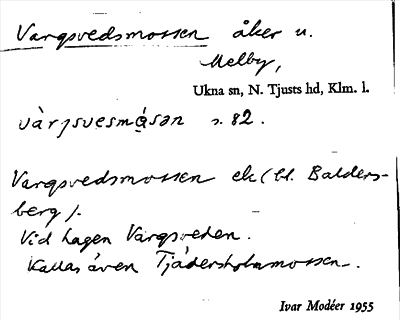 Vargsvedsmossen åker u.
Melby,
Ukna sn, N. Tjusts hd, Klm. l.
s. 82.
Vargsvedsmossen ek (bl. Balders-
berg).
Vid hagen Vargsveden.
Kallas även Tjädersholmsmossen.
Ivar Modéer 1955